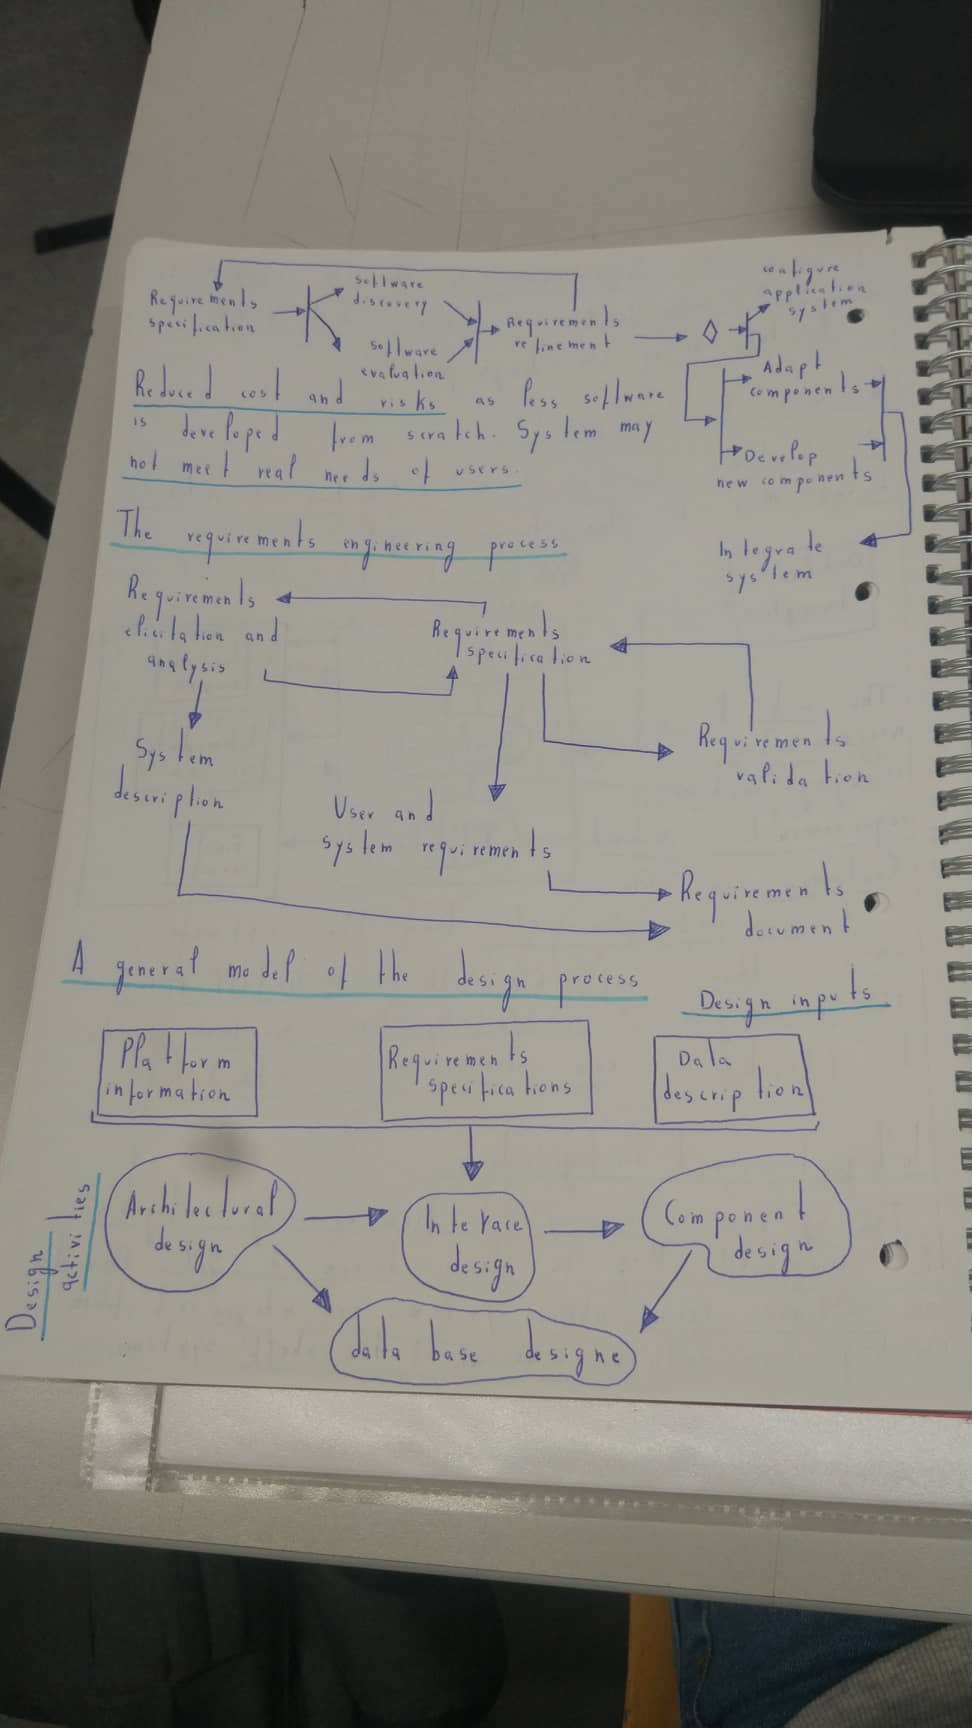 Requirements
specification
software
discovery
software
evaluation
Requirements
refinement
configure
application
system
Adapt
components
Develop
new components
Integrate
system
Reduced cost and risks as less software
is developed from scratch. System may
not meet real needs of users.
The requirements engineering process
Requirements
elicitation and
analysis
Requirements
specification
Requirements
validation
System
description
User and
system requirements
Requirements
document
A general model of the design process
Design inputs
Platform
information
Requirements
specifications
Data
description
Design
activities
Architectural
design
Interface
design
Component
design
data base designe